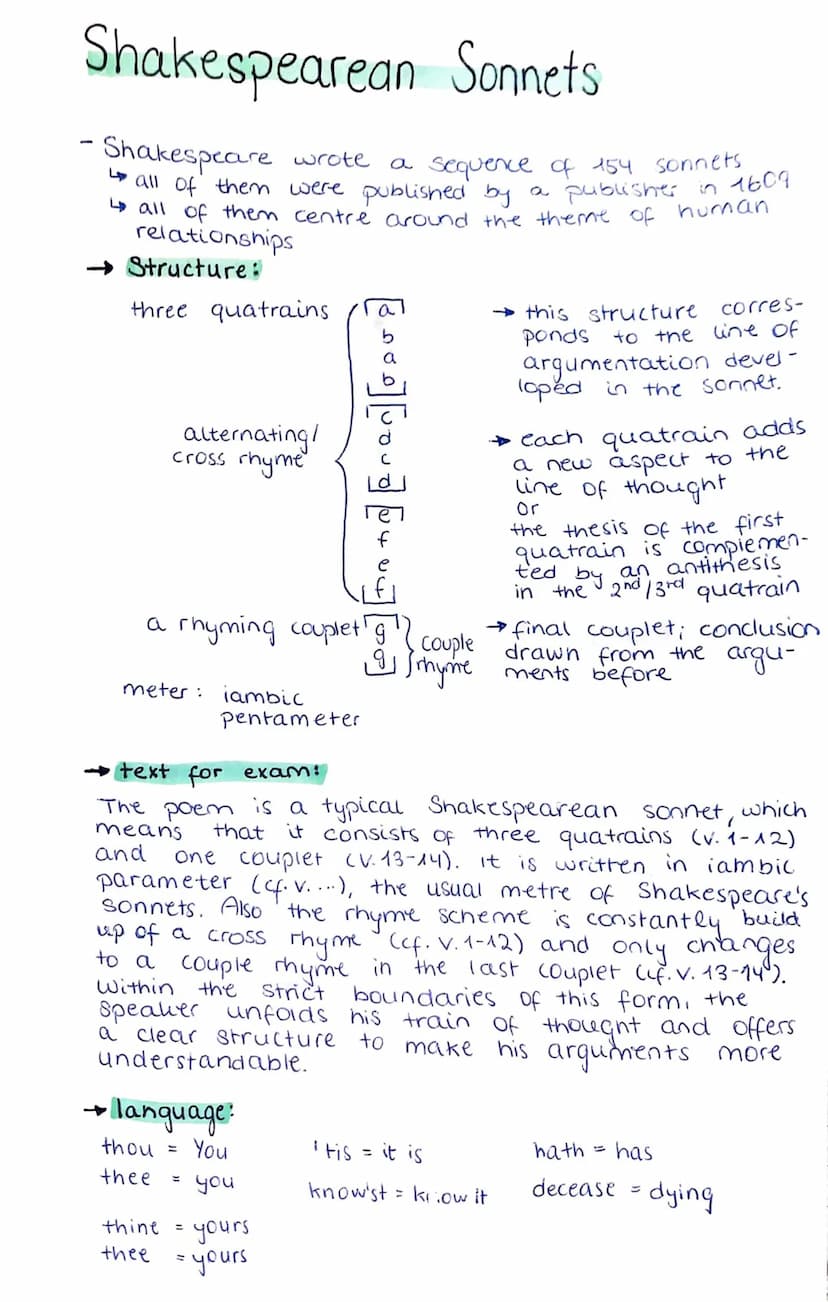 Shakespearean Sonnets
- Shakespeare wrote a sequence of 154 sonnets
↳ all of them were published by a publisher in 1609
↳ all of them centre around the theme of human
relationships
→ Structure:
three quatrains
a
b
a
b
alternating/
cross rhyme
c
d
c
d
e
f
e
f
→ this structure corres-
ponds to the line of
argumentation devel-
loped in the sonnet.
→ each quatrain adds
a new aspect to the
line of thought
or
the thesis of the first
quatrain is complemen-
ted by an antithesis
in the 2nd/3rd quatrain
a rhyming couplet
g
g
couple
rhyme
→ final couplet; conclusion
drawn from the argu-
ments before
meter: iambic
pentameter
→ text for exam:
The poem is a typical Shakespearean sonnet, which
means that it consists of three quatrains (v. 1-12)
and one couplet (v. 13-14). It is written in iambic
parameter (cf. v. ...), the usual metre of Shakespeare's
sonnets. Also the rhyme scheme is constantly build
up of a cross rhyme (cf. v. 1-12) and only changes
to a couple rhyme in the last couplet (cf. v. 13-14).
Within the strict boundaries of this form, the
speaker unfolds his train of thought and offers
a clear structure to make his arguments more
understandable.
→ language:
thou = You
thee = you
thine = yours
thee = yours
'tis = it is
know'st = know it
hath = has
decease = dying